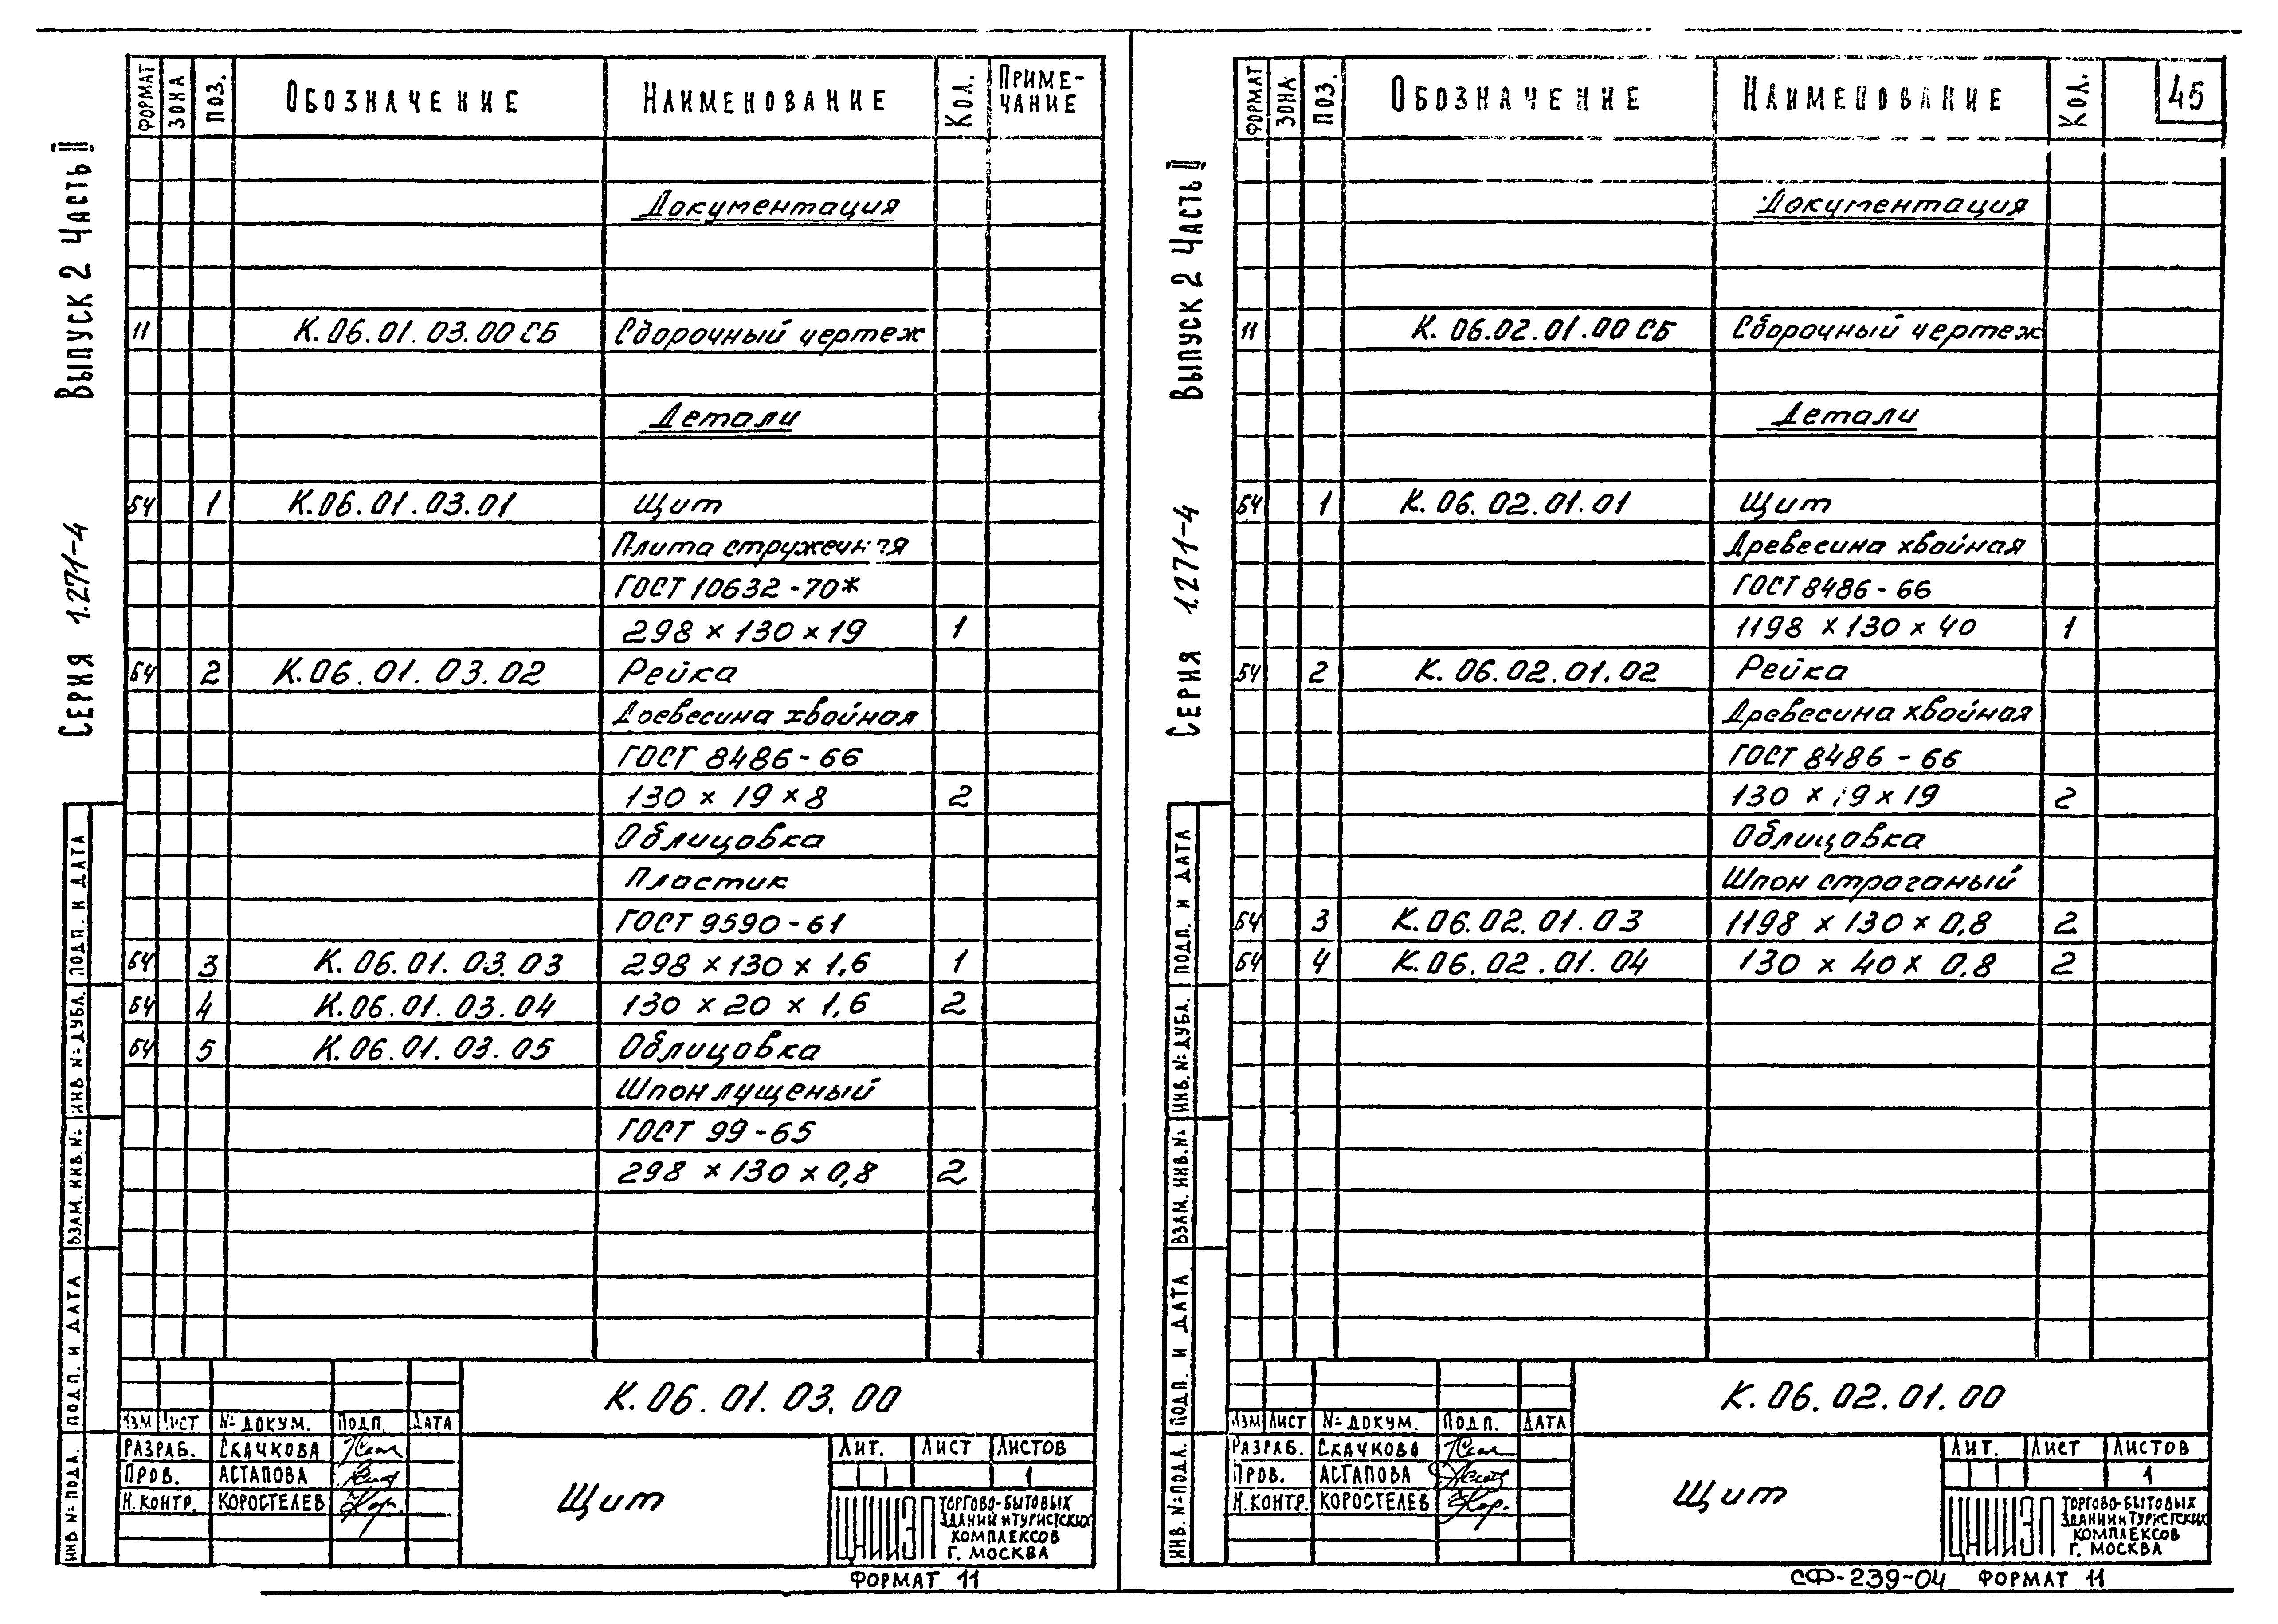 Выпуск 2 Часть II
Серия 1.271-4
ФОРМАТ ЗОНА ПОЗ. ОБОЗНАЧЕНИЕ НАИМЕНОВАНИЕ КОЛ. ПРИМЕ-
ЧАНИЕ
Документация
11 К.06.01.03.00 СБ Сборочный чертеж
Детали
БЧ 1 К.06.01.03.01 Щит
Плита стружечная
ГОСТ 10632-70*
298 × 130 × 19 1
БЧ 2 К.06.01.03.02 Рейка
Древесина хвойная
ГОСТ 8486-66
130 × 19 × 8 2
Облицовка
Пластик
ГОСТ 9590-61
БЧ 3 К.06.01.03.03 298 × 130 × 1,6 1
БЧ 4 К.06.01.03.04 130 × 20 × 1,6 2
БЧ 5 К.06.01.03.05 Облицовка
Шпон лущеный
ГОСТ 99-65
298 × 130 × 0,8 2
ИНВ № ПОДЛ. ПОДП. И ДАТА ВЗАМ. ИНВ. № ИНВ № ДУБЛ. ПОДП. И ДАТА
К.06.01.03.00
ИЗМ ЛИСТ № ДОКУМ. ПОДП. ДАТА
РАЗРАБ. СКАЧКОВА
ПРОВ. АСТАПОВА
Н.КОНТР. КОРОСТЕЛЕВ
Щит
ЛИТ. ЛИСТ ЛИСТОВ
1
ЦНИИЭП ТОРГОВО-БЫТОВЫХ
ЗДАНИЙ И ТУРИСТСКИХ
КОМПЛЕКСОВ
Г. МОСКВА
ФОРМАТ 11
45
Выпуск 2 Часть II
Серия 1.271-4
ФОРМАТ ЗОНА ПОЗ. ОБОЗНАЧЕНИЕ НАИМЕНОВАНИЕ КОЛ.
Документация
11 К.06.02.01.00 СБ Сборочный чертеж
Детали
БЧ 1 К.06.02.01.01 Щит
Древесина хвойная
ГОСТ 8486-66
1198 × 130 × 40 1
БЧ 2 К.06.02.01.02 Рейка
Древесина хвойная
ГОСТ 8486-66
130 × 19 × 19 2
Облицовка
Шпон строганый
БЧ 3 К.06.02.01.03 1198 × 130 × 0,8 2
БЧ 4 К.06.02.01.04 130 × 40 × 0,8 2
ИНВ. № ПОДЛ. ПОДП. И ДАТА ВЗАМ. ИНВ. № ИНВ. № ДУБЛ. ПОДП. И ДАТА
К.06.02.01.00
ИЗМ ЛИСТ № ДОКУМ. ПОДП. ДАТА
РАЗРАБ. СКАЧКОВА
ПРОВ. АСТАПОВА
Н.КОНТР. КОРОСТЕЛЕВ
Щит
ЛИТ. ЛИСТ ЛИСТОВ
1
ЦНИИЭП ТОРГОВО-БЫТОВЫХ
ЗДАНИЙ И ТУРИСТСКИХ
КОМПЛЕКСОВ
Г. МОСКВА
СФ-239-04 ФОРМАТ 11